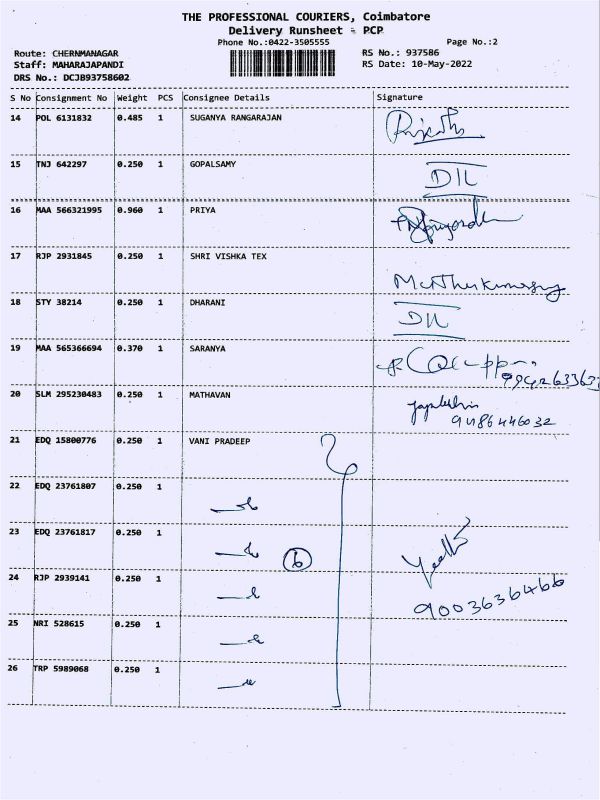 THE PROFESSIONAL COURIERS, Coimbatore
Delivery Runsheet - PCP
Phone No.:0422-3505555
Page No.:2
Route: CHERNMANAGAR
RS No.: 937586
Staff: MAHARAJAPANDI
RS Date: 10-May-2022
DRS No.: DCJB93758602
S No Consignment No Weight PCS Consignee Details Signature
14 POL 6131832 0.485 1 SUGANYA RANGARAJAN
15 TNJ 642297 0.250 1 GOPALSAMY
16 MAA 566321995 0.960 1 PRIYA
17 RJP 2931845 0.250 1 SHRI VISHKA TEX
18 STY 38214 0.250 1 DHARANI
19 MAA 565366694 0.370 1 SARANYA
20 SLM 295230483 0.250 1 MATHAVAN
9486446032
21 EDQ 15800776 0.250 1 VANI PRADEEP
22 EDQ 23761807 0.250 1
23 EDQ 23761817 0.250 1
24 RJP 2939141 0.250 1
9003636466
25 NRI 528615 0.250 1
26 TRP 5989068 0.250 1